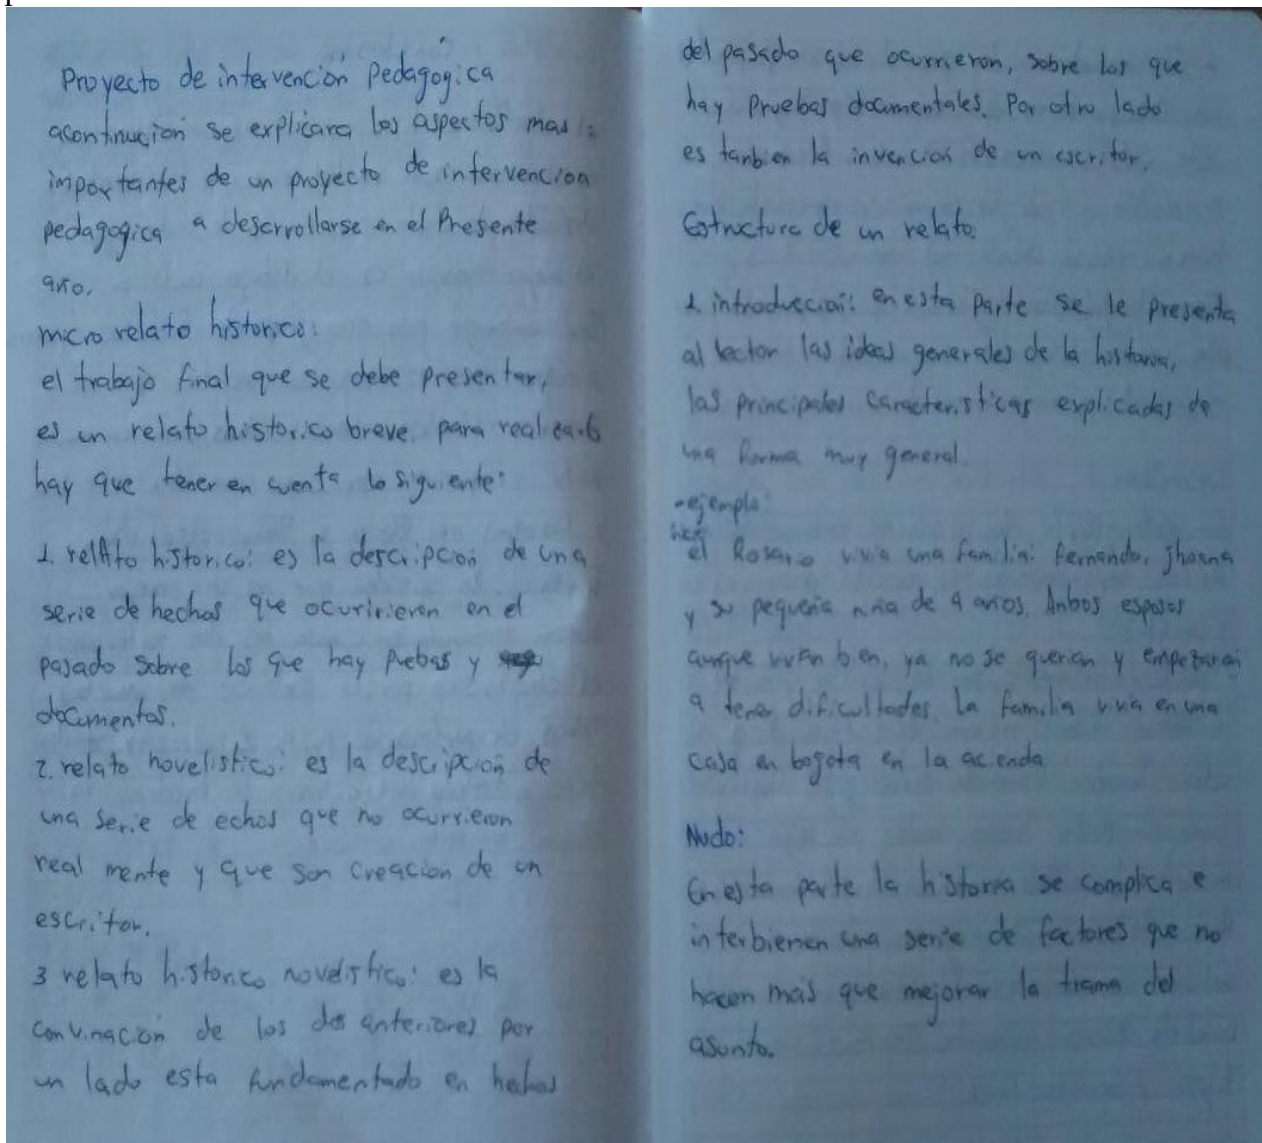 Proyecto de intervención Pedagogica
acontinución se explicara los aspectos mas
importantes de un proyecto de intervencion
pedagogica a descrrollarse en el Presente
año.
micro relato historico:
el trabajo final que se debe presentar,
es un relato historico breve. para realizarlo
hay que tener en cuenta lo siguiente:
1. relAto historico: es la descripción de una
serie de hechos que ocuririeren en el
pasado sobre los que hay puebas y
documentos.
2. relato novelistico: es la descripción de
una serie de echos que no ocurrieron
real mente y que son creacion de un
escritor.
3 relato historico novelistico: es la
convinación de los dos anteriores por
un lado esta fundamentado en hechos
del pasado que ocurrieron, sobre los que
hay Pruebas documentales. Por otro lado
es tanbien la invención de un escritor.
Estructura de un relato.
1. introducción: en esta parte se le presenta
al lector las ideas generales de la historia,
las principales caracteristicas explicadas de
una forma muy general.
-ejemplo:
el Rosario vivia una familia: Fernando, jhoana
y su pequeña niña de 4 años. Anbos esposos
aunque vivian bien, ya no se querian y empezaron
a tener dificultades. La familia vivia en una
casa en bogota en la acienda
Nudo:
En esta parte la historia se complica e
interbienen una serie de factores que no
hacen mas que mejorar la trama del
asunto.